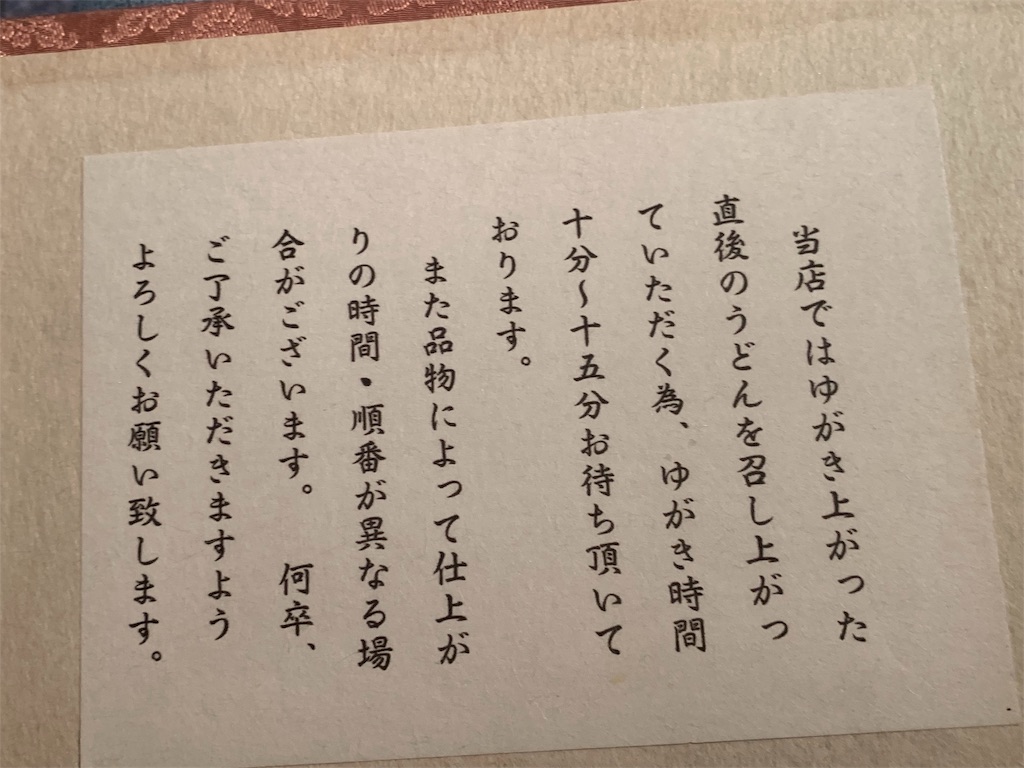 当店ではゆがき上がった
直後のうどんを召し上がっ
ていただく為、ゆがき時間
十分～十五分お待ち頂いて
おります。
また品物によって仕上が
りの時間・順番が異なる場
合がございます。　何卒、
ご了承いただきますよう
よろしくお願い致します。